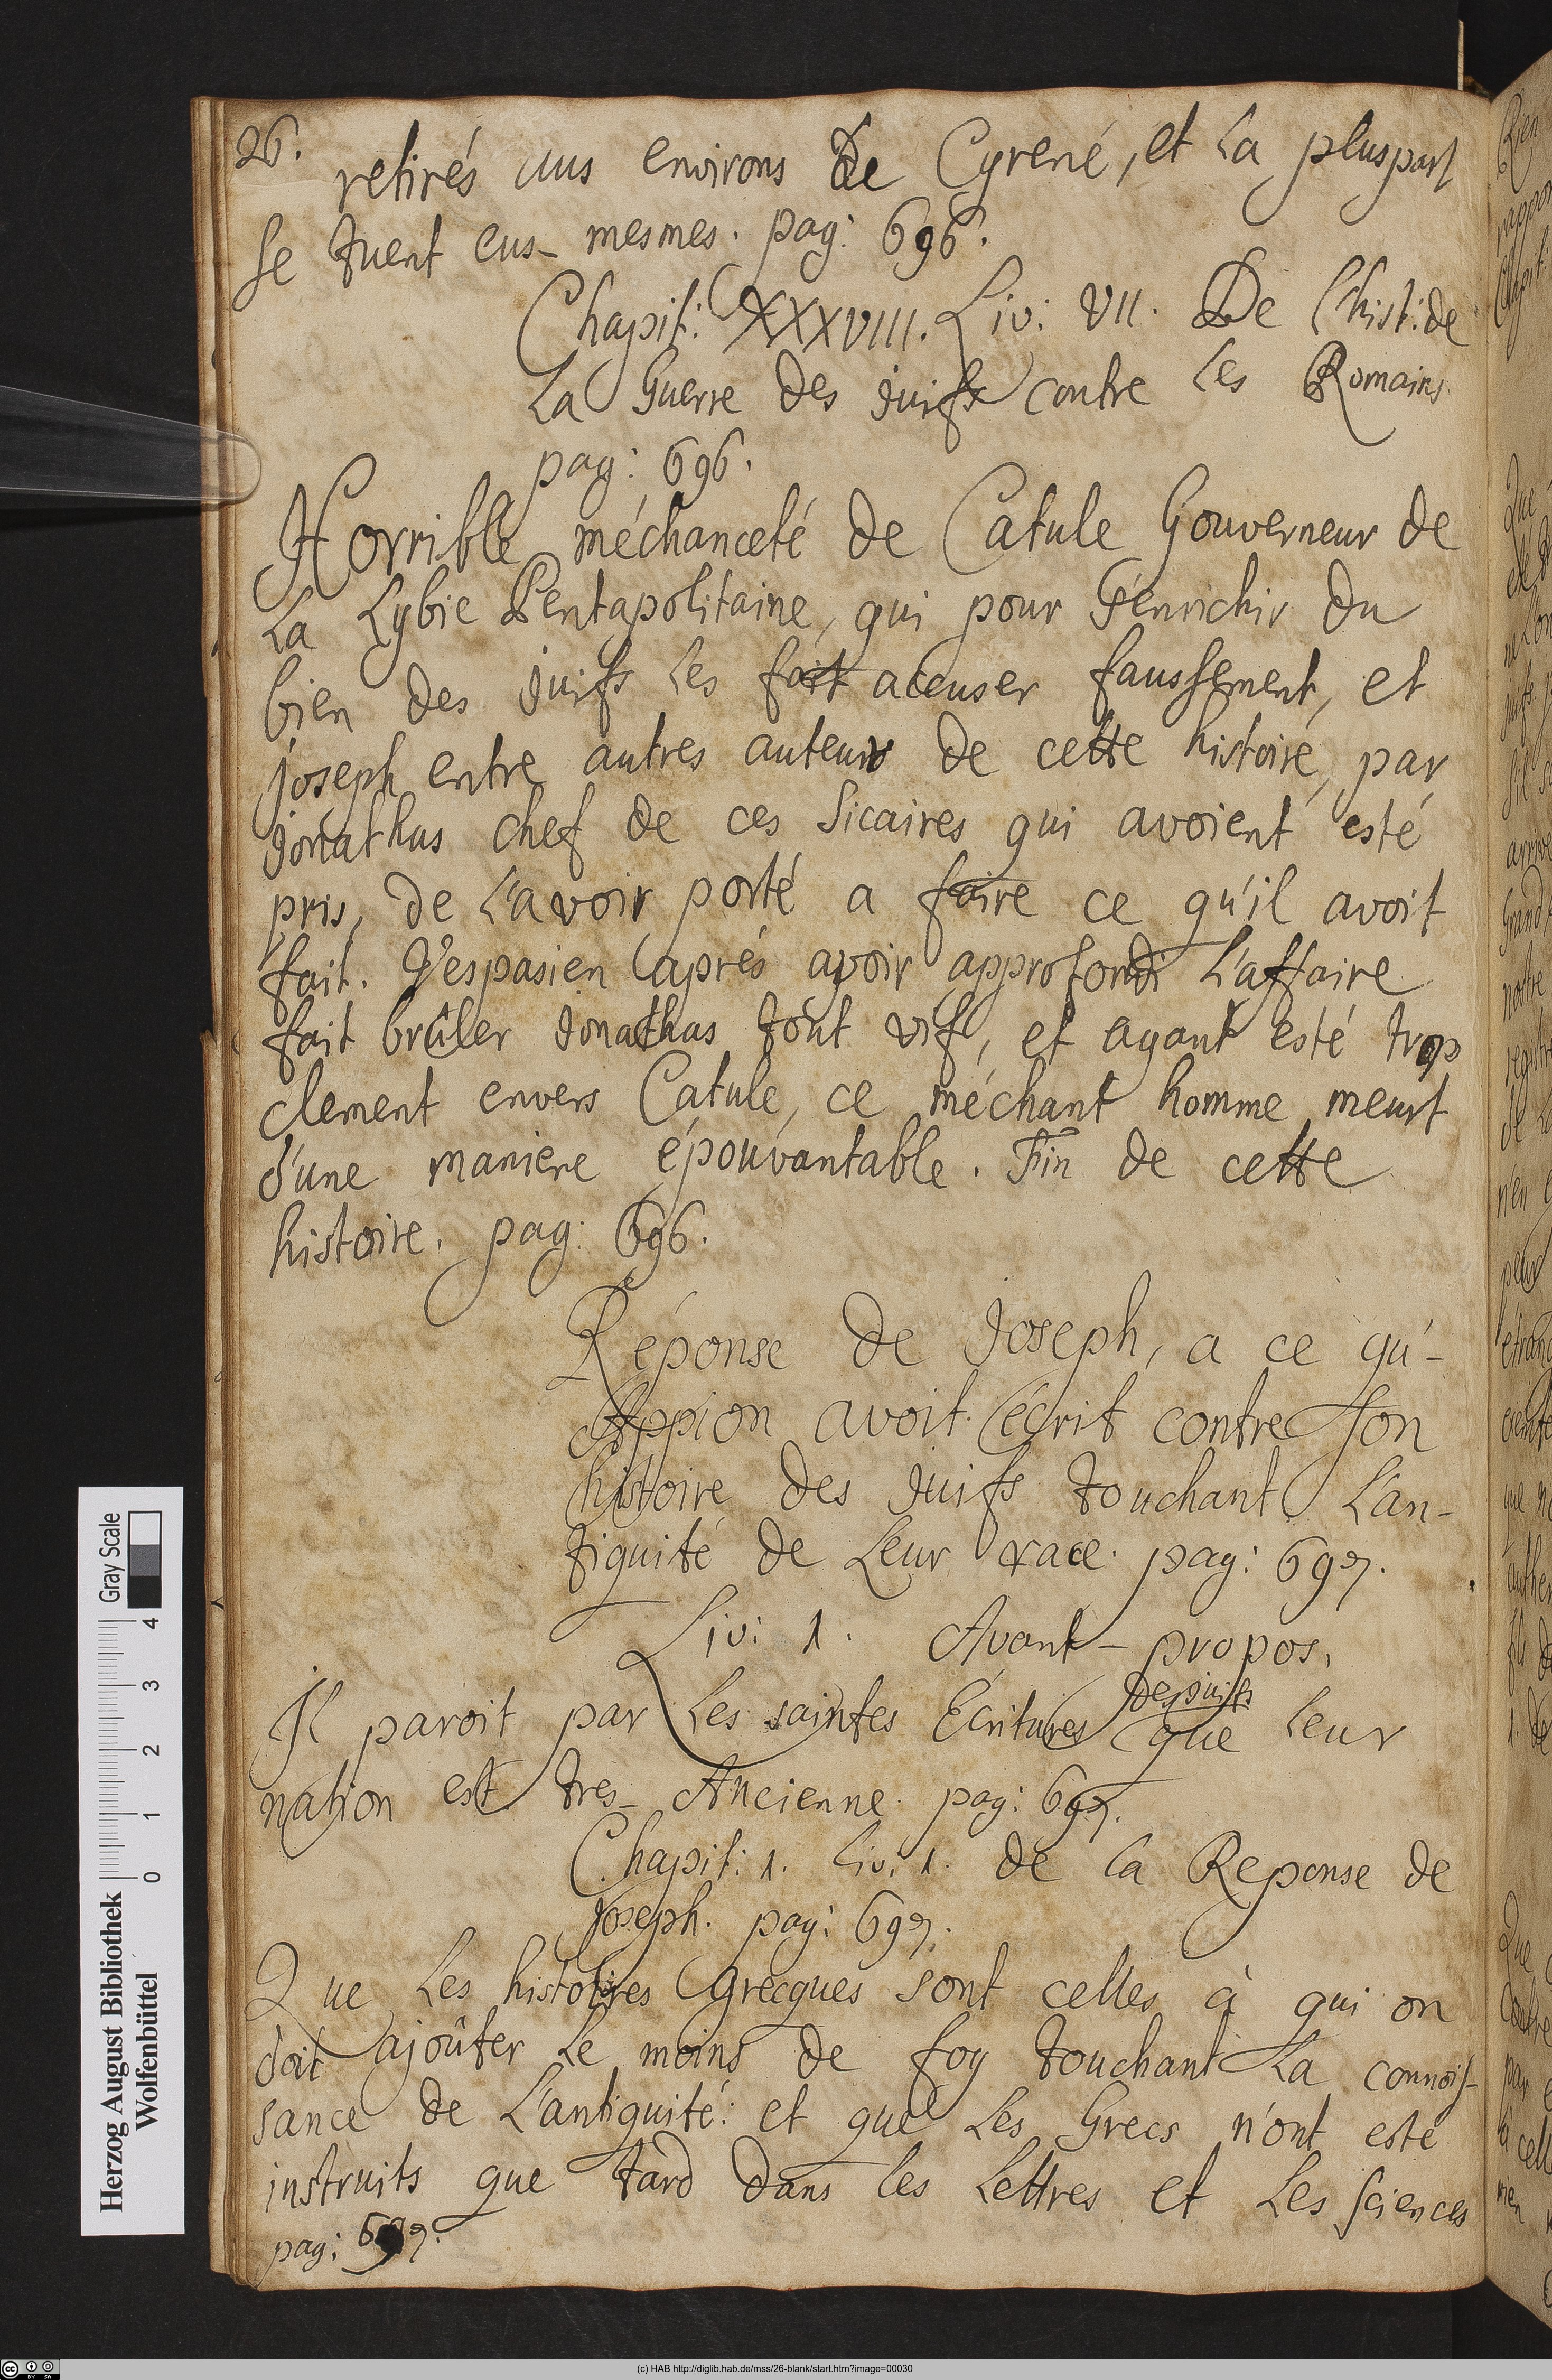 26.
retirés aus environs de Cyrené, et la pluspart
se tuent eus-mesmes. pag: 696.
Chapit: XXXVIII. Liv: VII. De l'hist: de
La Guerre des juifs contre les Romains
pag: 696.
Horrible méchanceté de Catule Gouverneur de
La Lybie Pentapolitaine, qui pour s'enrichir du
bien des juifs les fait acuser faussement, et
joseph entre autres auteur de cette histoire, par
jonathus chef de ces Sicaires qui avoient esté
pris, de l'avoir porté a faire ce qu'il avoit
fait. Vespasien aprés avoir approfondi l'affaire
fait brûler Jonathus tout vif, et ayant esté trop
clement envers Catule, ce méchant homme meurt
d'une maniere épouvantable. Fin de cette
histoire. pag: 696.
Réponse de Joseph, a ce qu'-
Appion avoit écrit contre son
histoire des juifs touchant l'an-
tiquité de leur race. pag: 697.
Liv: 1. Avant-propos.
des juifs
Il paroit par les saintes Ecritures que leur
nation est tres-Ancienne. pag: 697.
Chapit: 1. Liv: 1. de la Reponse de
Joseph. pag: 697.
Que les histoires grecques sont celles à qui on
doit ajoûter le moins de foy touchant la connois-
sance de l'antiquité: et que les Grecs n'ont esté
instruits que tard dans les lettres et les sciences
pag: 697.
Herzog August Bibliothek
Wolfenbüttel
0 1 2 3 4
Gray Scale
(c) HAB http://diglib.hab.de/mss/26-blank/start.htm?image=00030